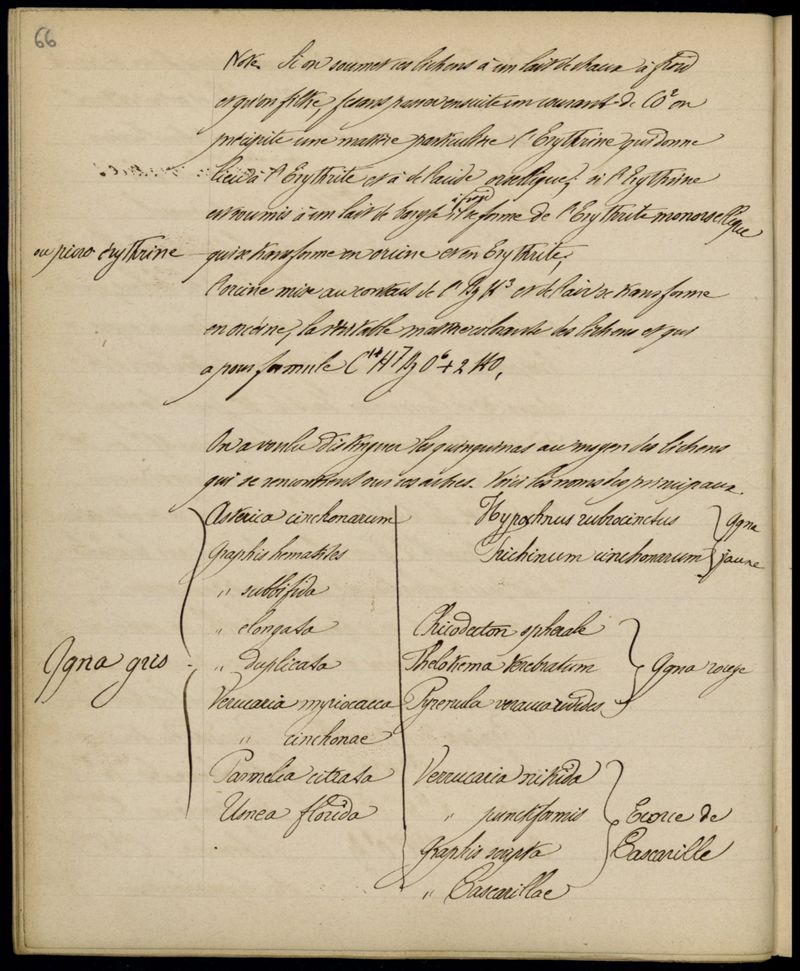 66
Note. Si on soumet ces lichens à un lait de chaux à froid
et qu'on filtre, faisans passer ensuite un courant de CO² on
précipite une matière particulière l'Erythrine qui donne
lieu à l'Erythrite et à de l'acide orsellique; si l'Erythrine
à froid
est soumis à un lait de il se forme de l'Erythrite monorsellique
ou picro érythrine
qui se transforme en orcine et en Erythrite;
l'orcine mise au contact de l'Az H³ et de l'air se transforme
en orcéine, la véritable matière colorante des lichens et qui
a pour formule C¹⁴H⁷Az O⁶ + 2 HO,
On a voulu distinguer les quinquinas au moyen des lichens
qui se rencontrent sur ces arbres. Voici les noms des principaux.
Qqna gris
Asterica cinchonarum
Graphis hematites
" subbifida
" elongata
" duplicata
Verrucaria myriococca
" cinchonae
Parmelia citrata
Usnea florida
Hypochnus rubrocinctus
Trichinum cinchonarum
Qqna jaune
Chiodecton spherale
Thelotrema terebratum
Pyrenula verrucarioides
Qqna rouge
Verrucaria nitida
" punctiformis
Graphis scripta
" Cascarillae
Ecorce de
Cascarille